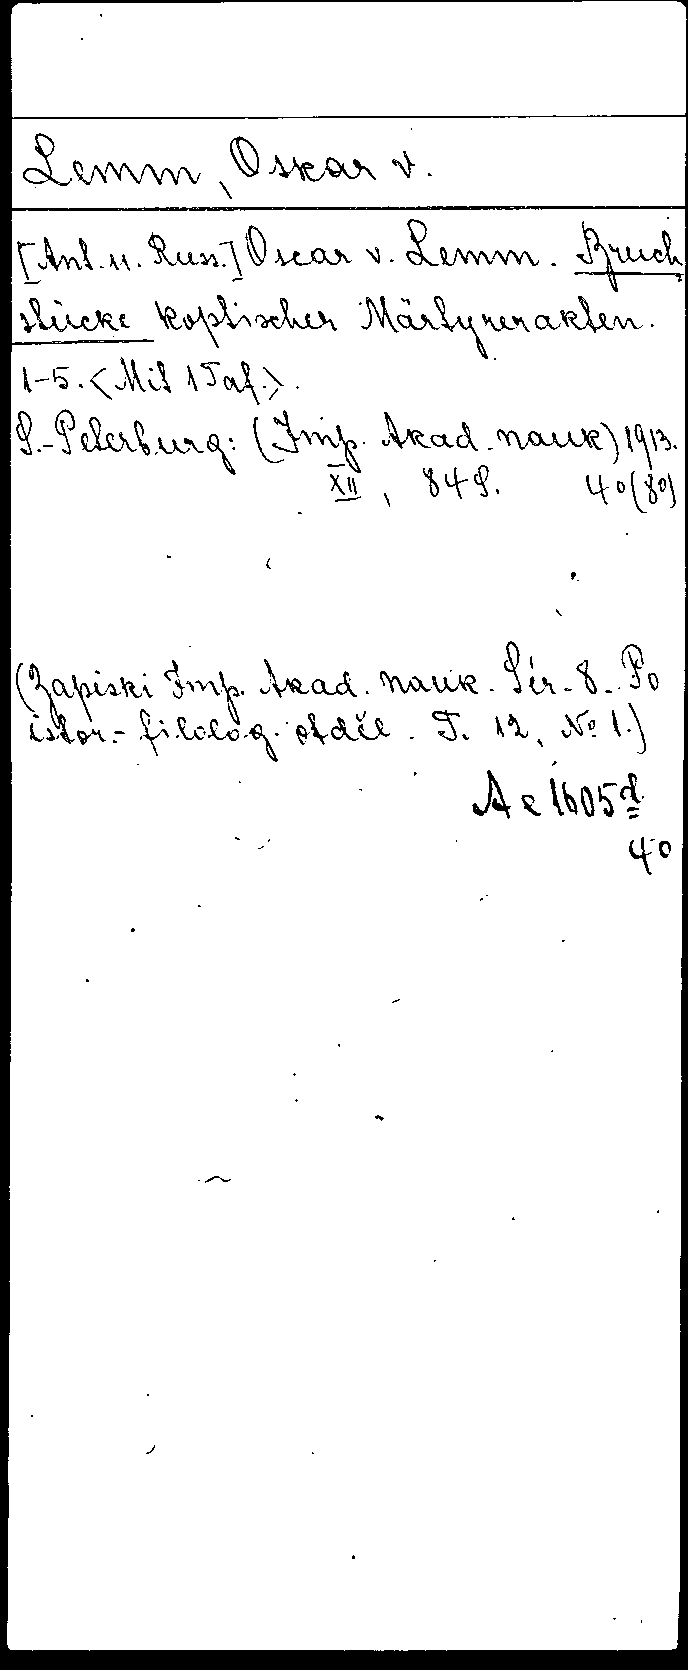 Lemm, Oskar v.
[Ant. u. Russ.] Oscar v. Lemm. Bruch
stücke koptischer Märtyrerakten.
1-5. <Mit 1 Taf.>.
S.-Peterburg: (Imp. Akad. nauk) 1913.
XII, 84 S. 4°(8°)
(Zapiski Imp. Akad. nauk. Sér. 8. Po
istor.-filolog. otděl. T. 12, No 1.)
Ae 1605d
4°